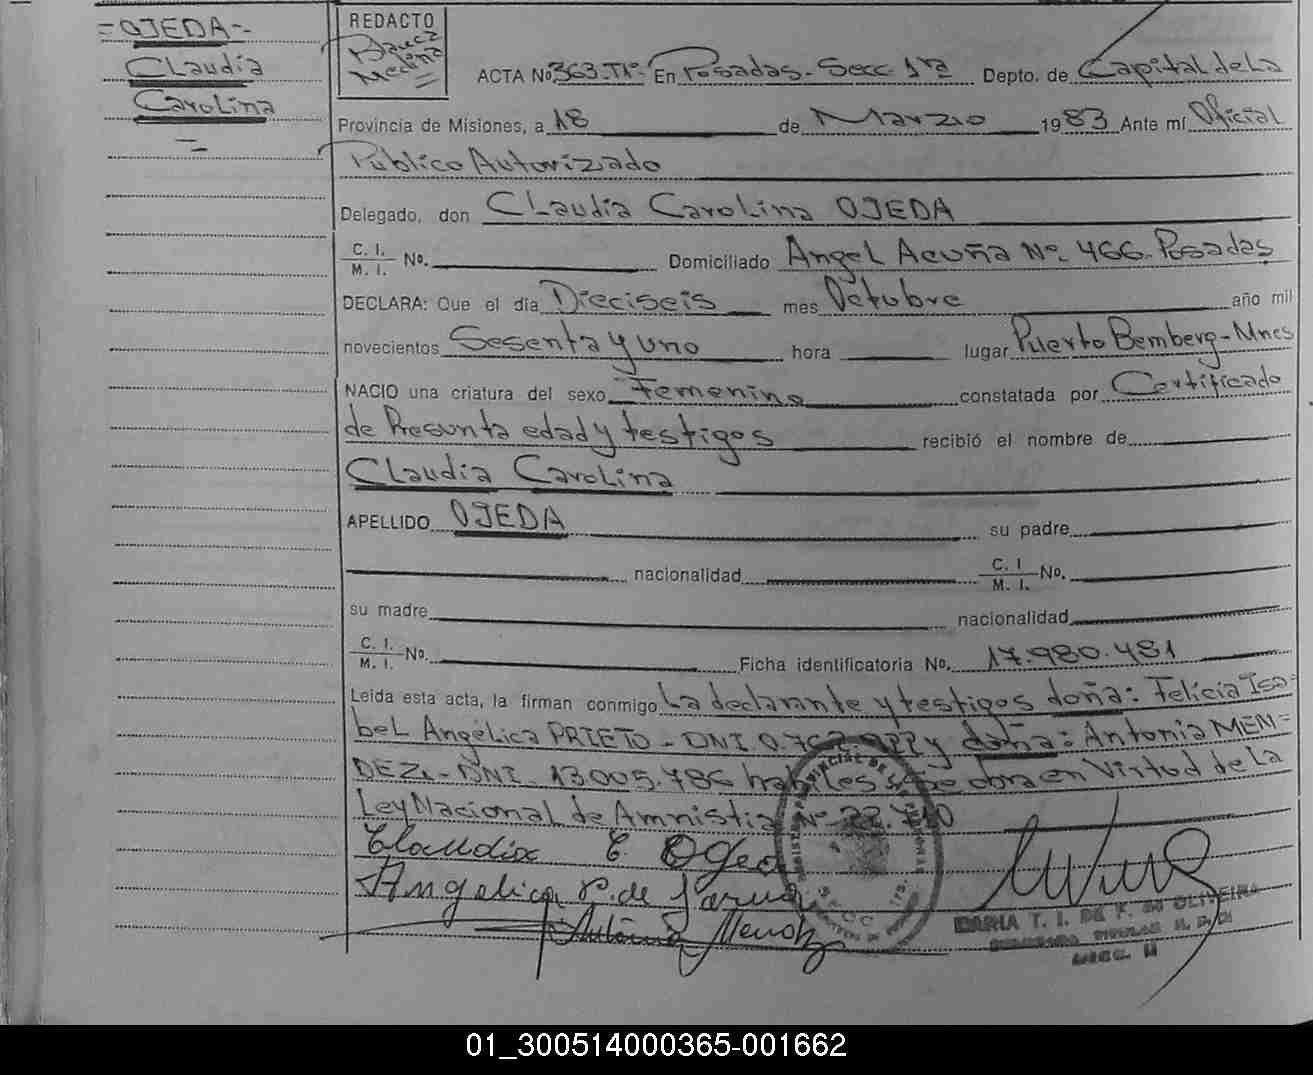 -OJEDA-
Claudia
Carolina
REDACTO
Medina
ACTA Nº 363-Tº- En Posadas- Secc. 1ra Depto. de Capital de la
Provincia de Misiones, a 18 de Marzo 1983 Ante mí Oficial
Público Autorizado
Delegado, don Claudia Carolina OJEDA
C. I. M. I. Nº. Domiciliado Angel Acuña Nº. 466. Posadas
DECLARA: Que el día Dieciseis mes Octubre año mil
novecientos Sesenta y uno hora lugar Puerto Bemberg-Mnes
NACIO una criatura del sexo Femenino constatada por Certificado
de Presunta edad y testigos recibió el nombre de
Claudia Carolina
APELLIDO OJEDA su padre
nacionalidad C. I. M. I. Nº.
su madre nacionalidad
C. I. M. I. Nº. Ficha identificatoria Nº. 17.980.481
Leída esta acta, la firman conmigo La declarante y testigos doña: Felicia Isa-
bel Angélica PRIETO - DNI y doña: Antonia MEN=
DEZ.- DNI 13.005.786 habiles se obra en Virtud de la
Ley Nacional de Amnistia Nº 22.
Claudia C Ojeda
Angelica P. de
Antonia Mendez
MARIA T. I. DE F. DE OLIVEIRA
SECC.
01_300514000365-001662